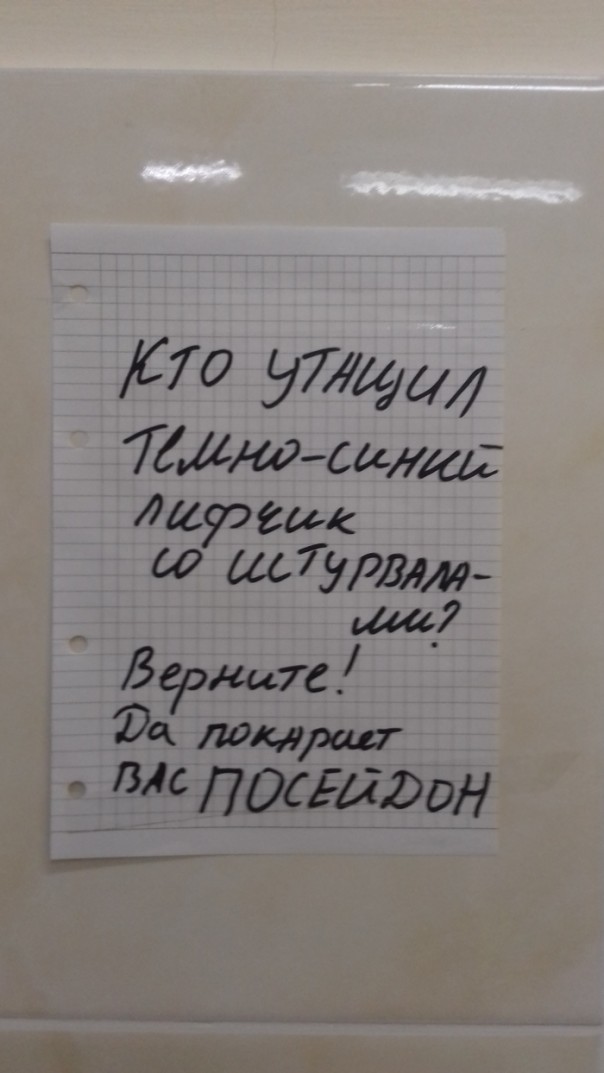 КТО УТАЩИЛ
темно-синий
лифчик
со ШТУРВАЛА-
ми?
Верните!
Да покарает
ВАС ПОСЕЙДОН